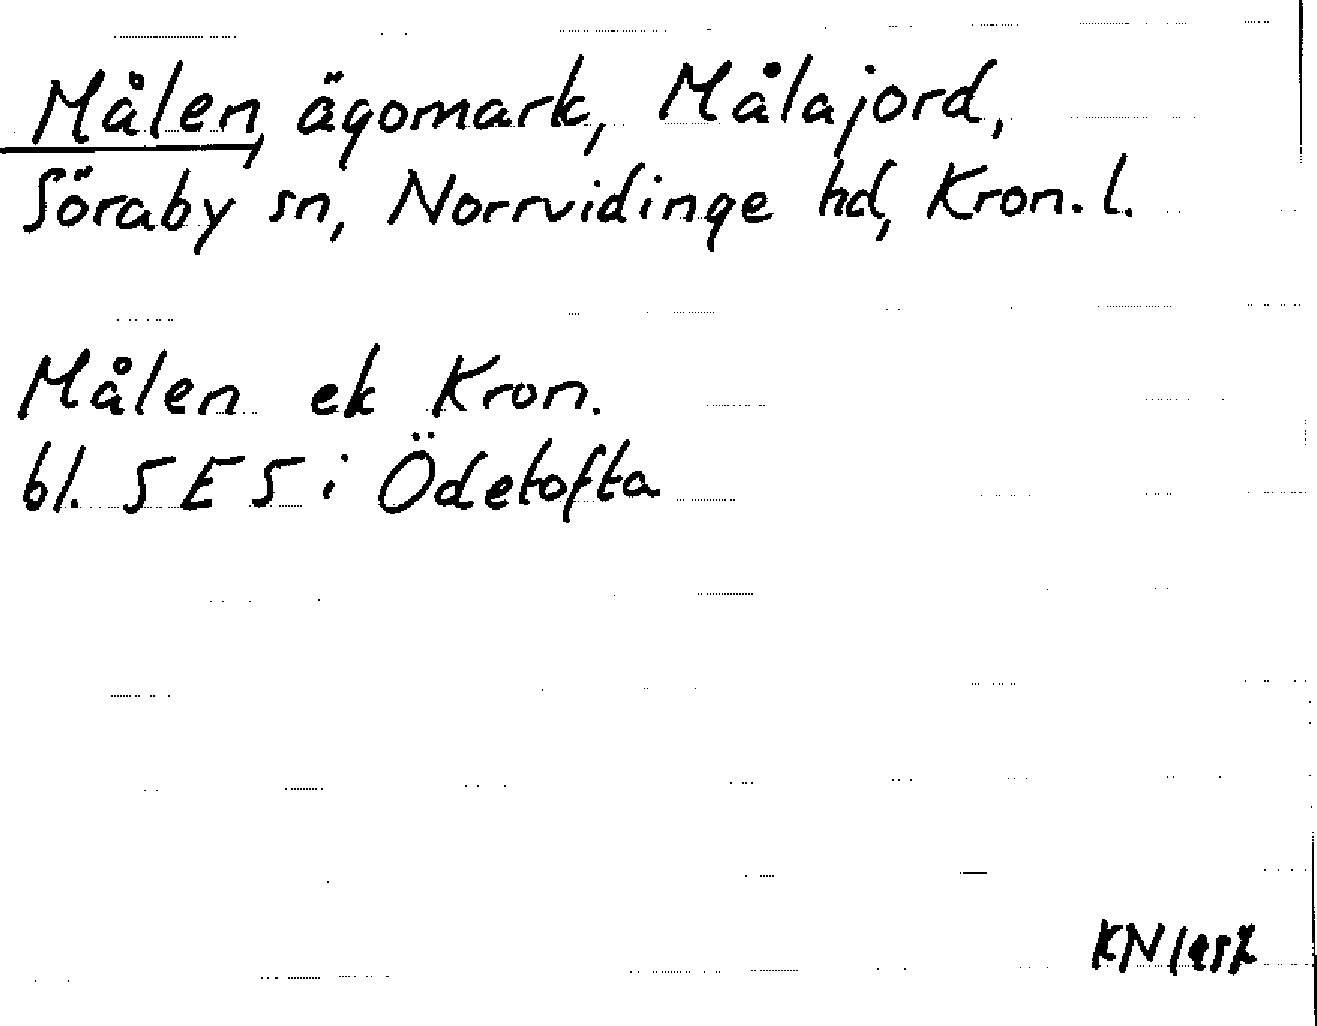 Målen, ägomark, Målajord,
Söraby sn, Norrvidinge hd, Kron. l.
Målen ek Kron.
bl. SES i Ödetofta